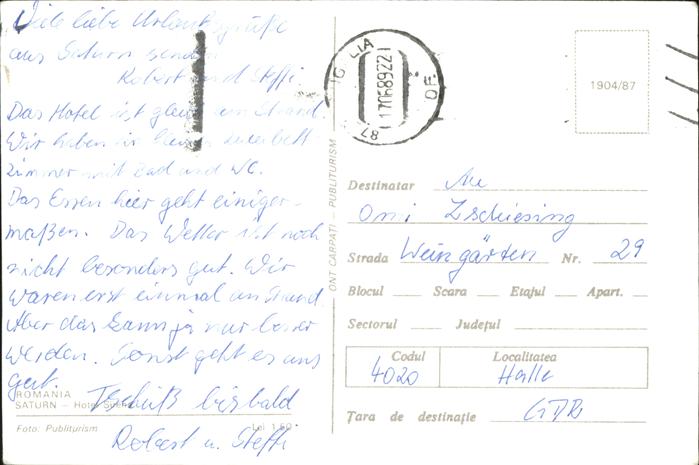 Viele liebe Urlaubsgrüße
aus Saturn senden
Robert und Steffi.
Das Hotel ist gleich am Strand.
Wir haben in
zimmer mit Bad und WC.
Das Essen hier geht einiger-
maßen. Das Wetter ist noch
nicht besonders gut. Wir
waren erst einmal am Strand.
Aber das kann ja nur besser
werden. Sonst geht es uns
gut.
Tschüß bis bald
Robert u. Steffi
ROMANIA
SATURN – Hotel
Foto: Publiturism
Lei 1,50
ONT CARPAȚI – PUBLITURISM
17.06.89.22
87
1904/87
Destinatar An
Omi Zschiesing
Strada Weingärten Nr. 29
Blocul Scara Etajul Apart.
Sectorul Județul
Codul Localitatea
4020 Halle
Țara de destinație GDR